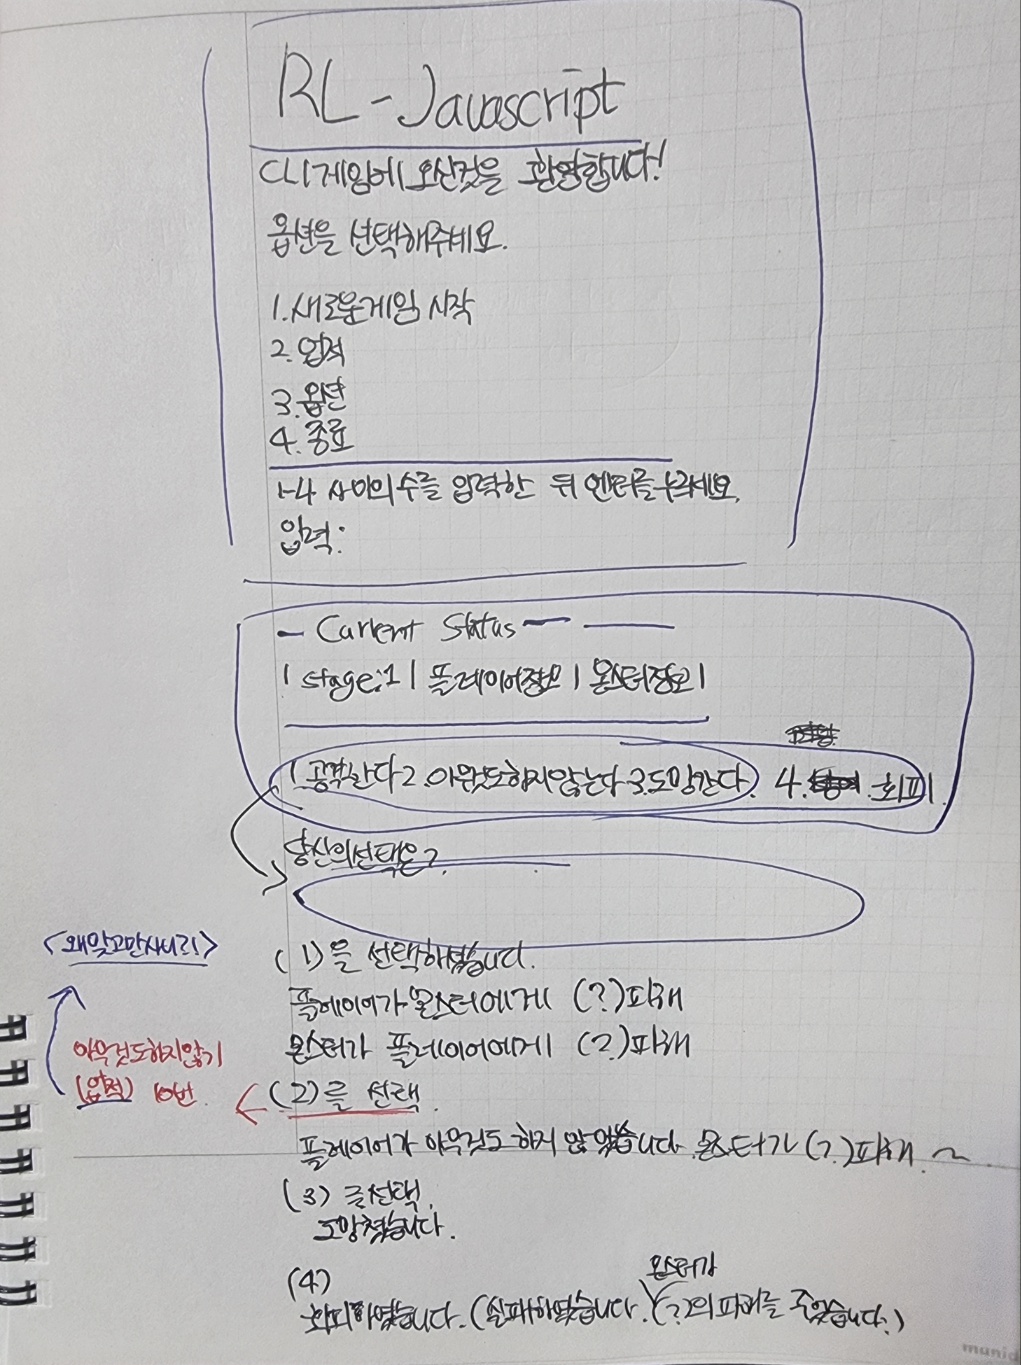 RL-Javascript
CLI게임에 오신것을 환영합니다!
옵션을 선택해주세요.
1.새로운게임 시작
2.업적
3.옵션
4.종료
1-4 사이의 수를 입력한 뒤 엔터를 누르세요.
입력:
- Current Status -
| stage:1 | 플레이어정보 | 몬스터정보 |
1.공격한다 2.아무것도하지않는다 3.도망간다. 4. 회피
당신의선택은?
(1)을 선택하셨습니다.
플레이어가 몬스터에게 (?)피해
몬스터가 플레이어에게 (?)피해
<왜맞고만사니리>
아무것도하지않기
(업적) 10번
(2)를 선택.
플레이어가 아무것도 하지 않았습니다. 몬스터가 (?)피해. ~
(3) 를선택.
도망쳤습니다.
(4)
몬스터가
회피하였습니다. (실패하였습니다. (?)의 피해를 주었습니다.)
munid